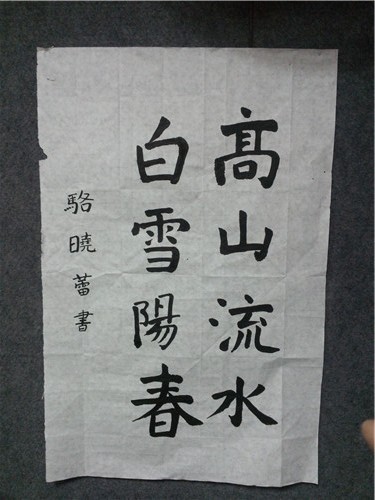 髙山流水
白雪陽春
駱曉蕾書